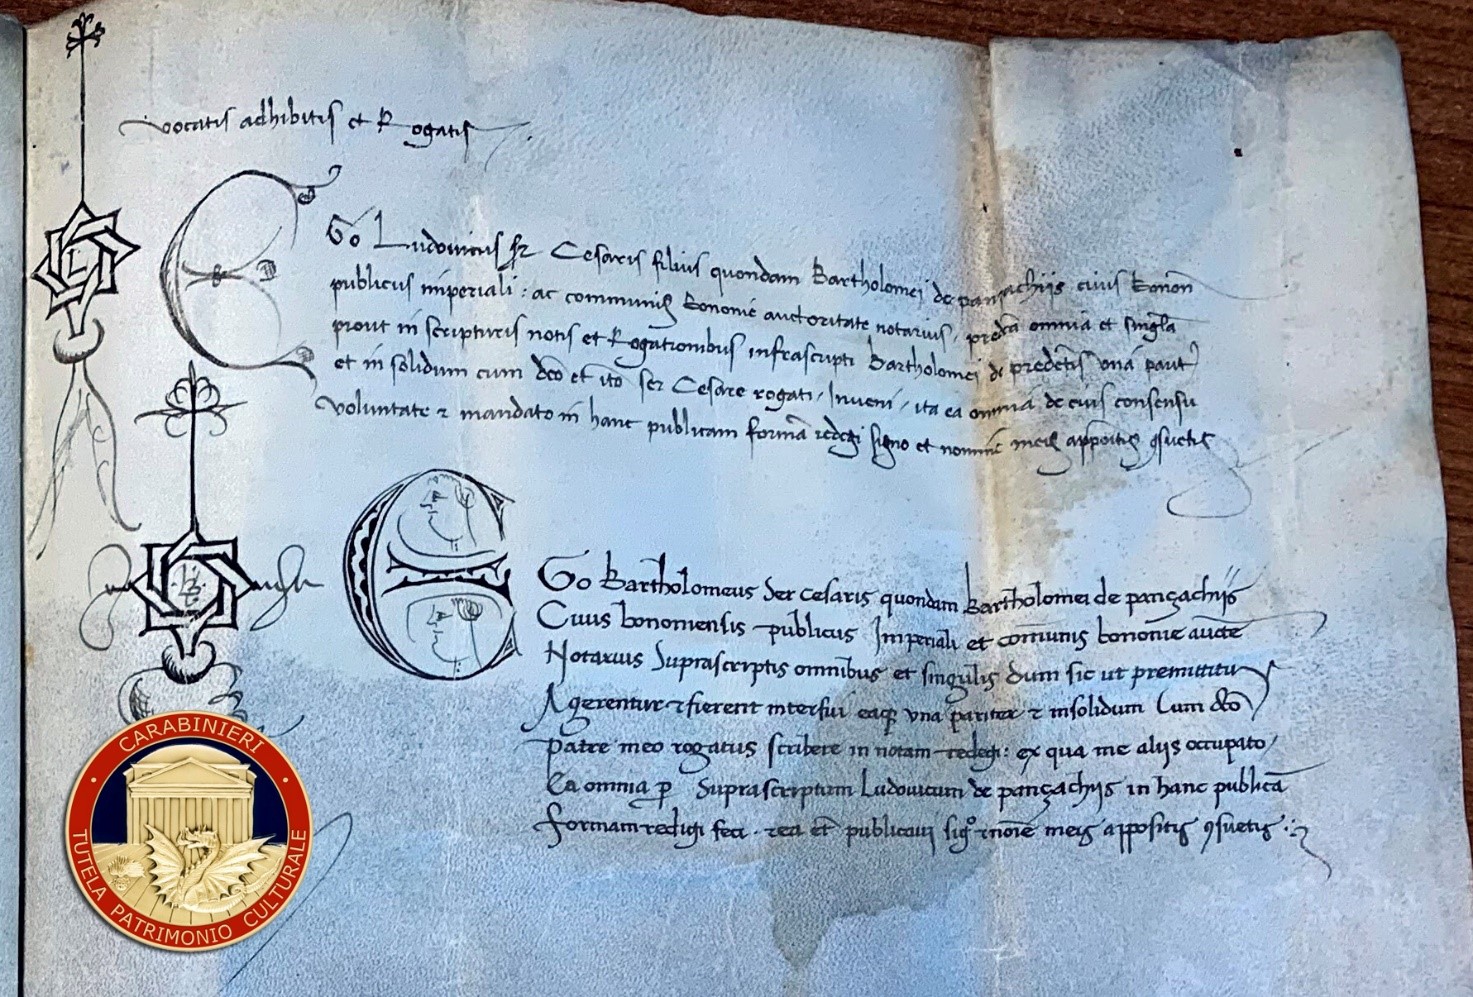 vocatis adhibitis et Rogatis
EGo Ludovicus ser Cesaris filius quondam Bartholomei de panzachijs civis bonon
publicus imperiali : ac communis bononie auctoritate notarius / predca omnia et singla
prout in scripturis notis et Rogationibus infrascripti Bartholomei de predctis una parit
et in solidum cum dco et ser Cesare rogati / Inveni / ita ea omnia de eius consensu
voluntate z mandato in hanc publicam formā redegi signo et nomine meis appositis ꝯsuetis
EGo Bartholomeus Ser Cesaris quondam Bartholomei de pançachijs
Civis bononiensis publicus Imperiali et comunis bononie aucte
Notarius Suprascriptis omnibus et singulis dum sic ut premittitur
Agerentur z fierent interfui eaqȝ una pariter z insolidum Cum dco
patre meo rogatus scribere in notam redegi : ex qua me alijs occupato /
Ea omnia ꝑ Suprascriptum Ludovicum de pançachijs in hanc publicā
formam redigi feci . publicavi sigo noīe meis appositis ꝯsuetis
L
CARABINIERI
TUTELA PATRIMONIO CULTURALE